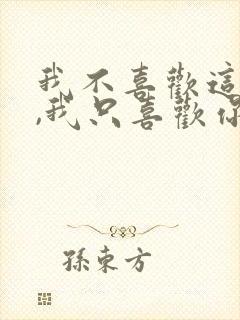 我不喜歡這
,我只喜歡你
孫東方